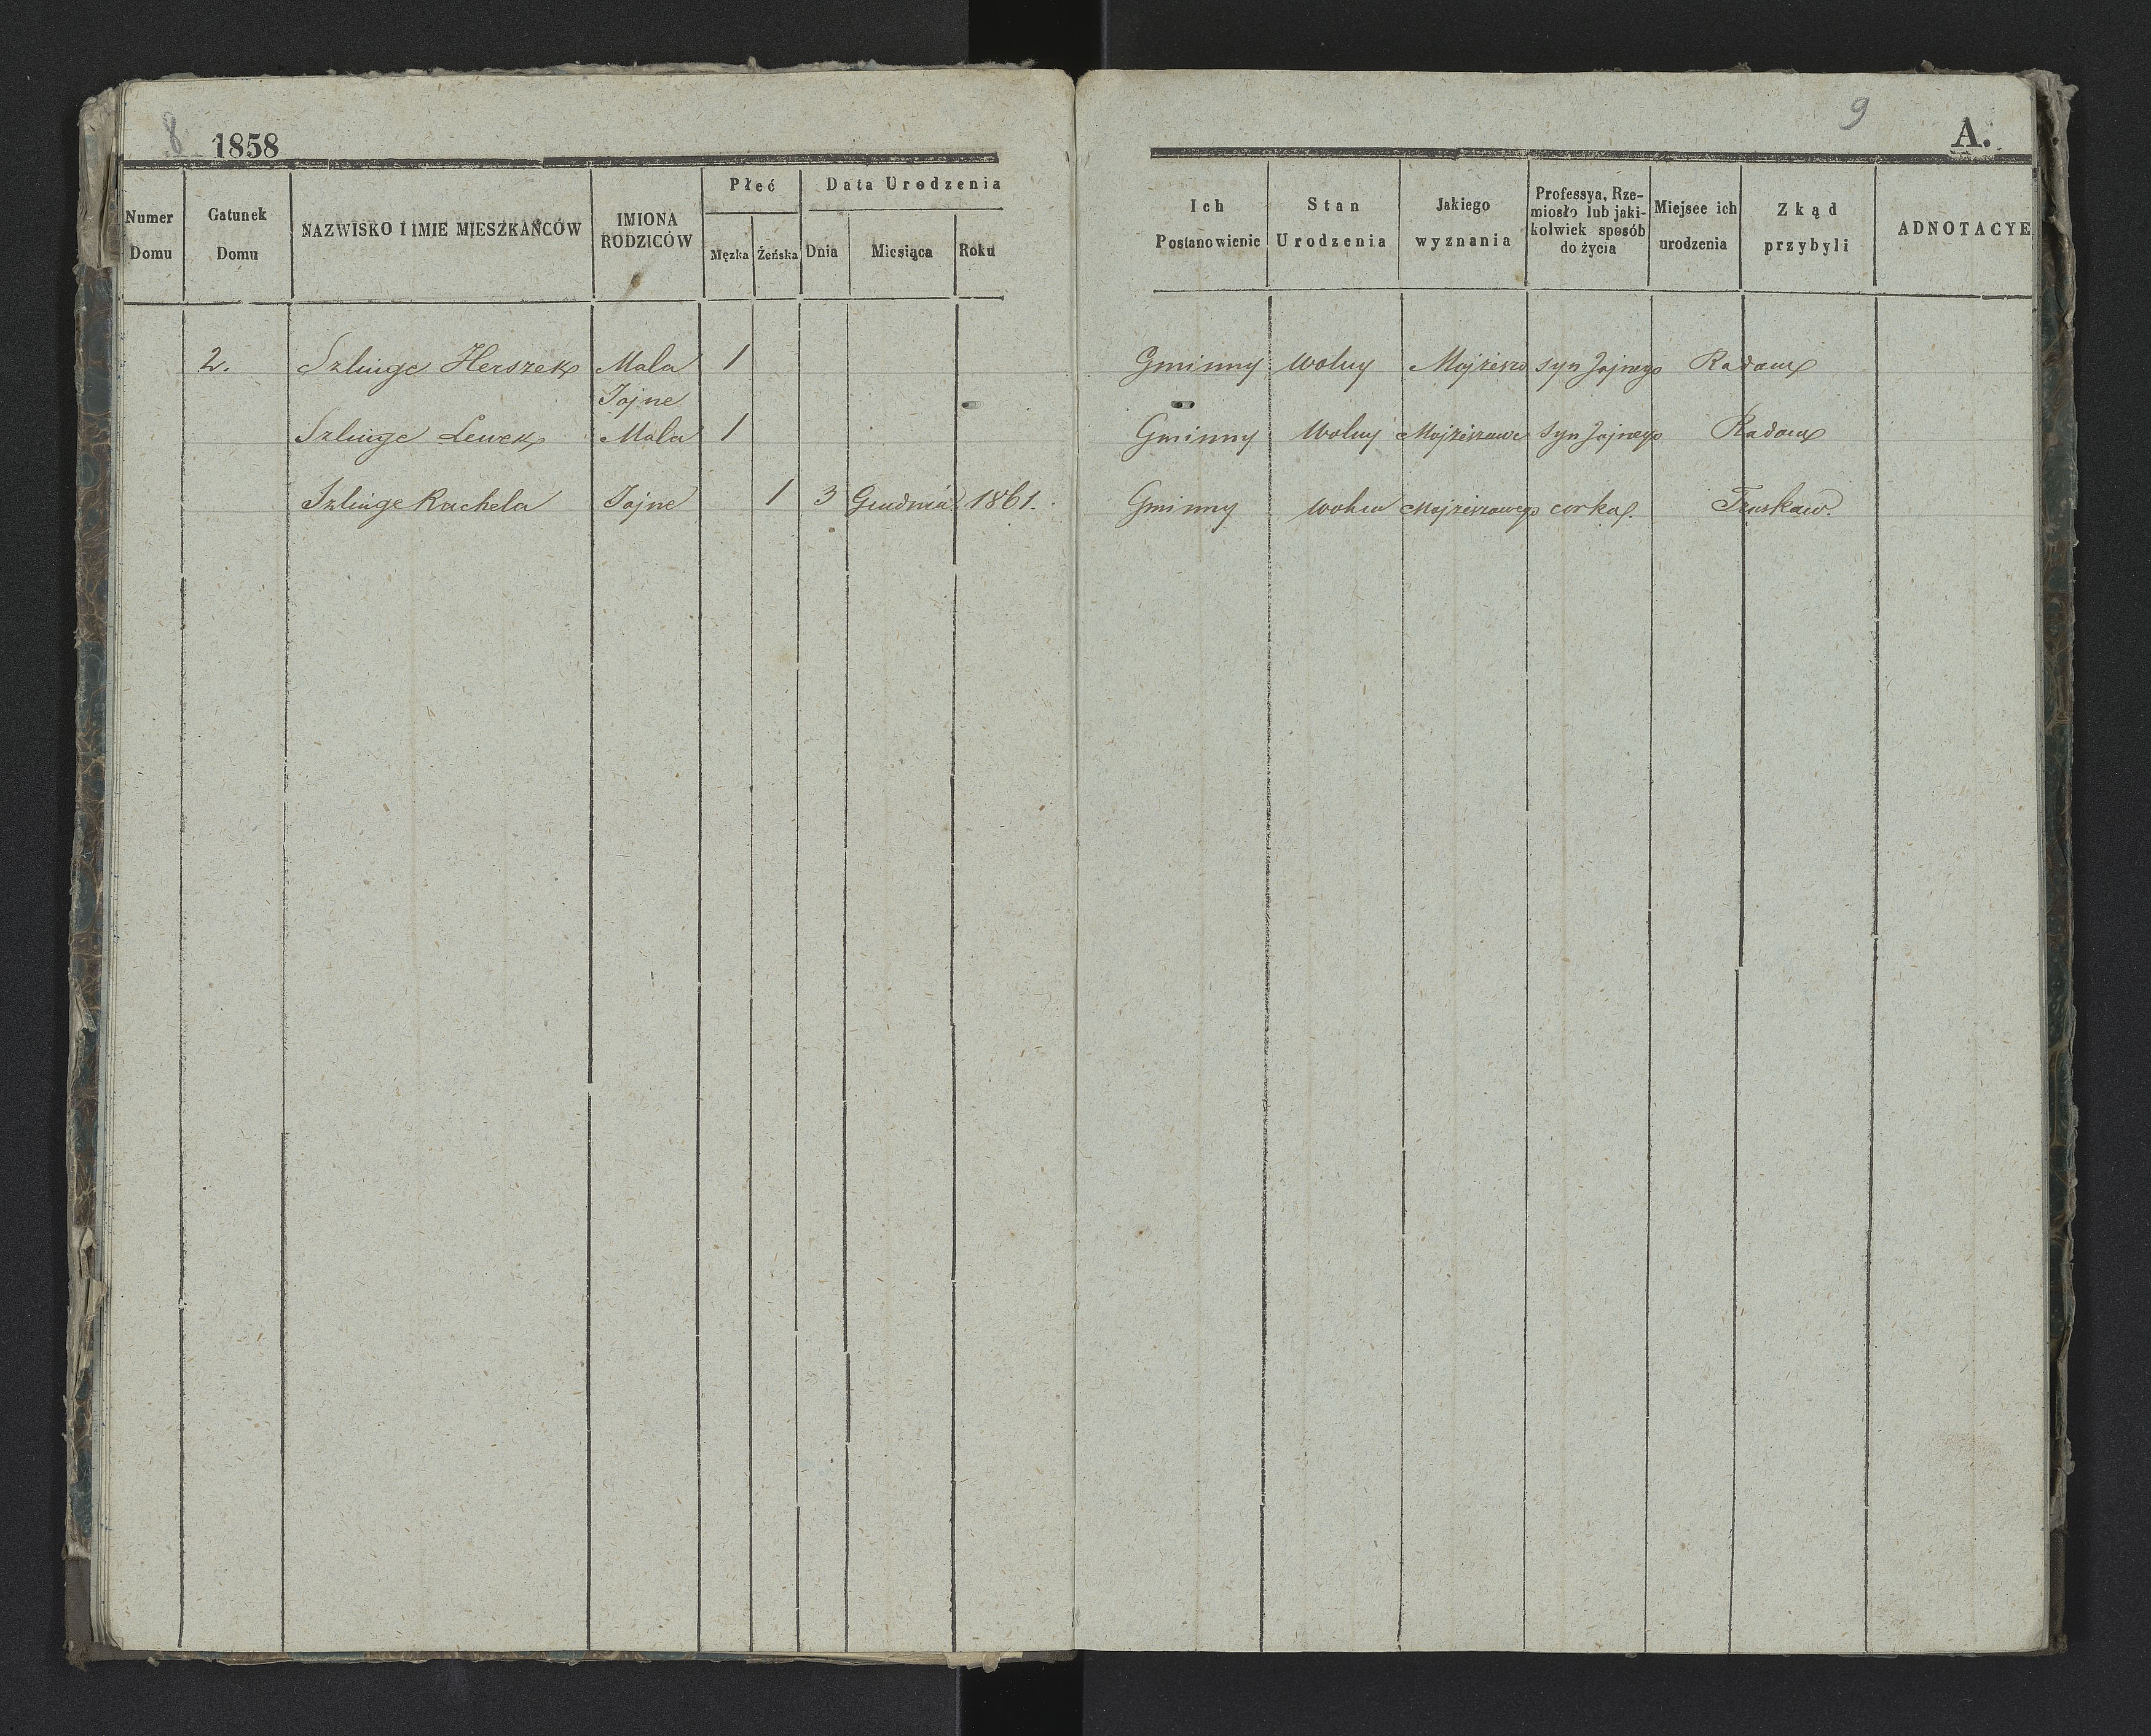 8 1858
9
A.
Numer Domu
Gatunek Domu
NAZWISKO I IMIE MIESZKAŃCÓW
IMIONA RODZICÓW
Płeć
Męzka
Żeńska
Data Urodzenia
Dnia
Miesiąca
Roku
Ich Postanowienie
Stan Urodzenia
Jakiego wyznania
Professya, Rze-
miosło lub jaki-
kolwiek sposób
do życia
Miejsce ich urodzenia
Zkąd przybyli
ADNOTACYE
2. Szlinge Herszek Mala 1 Gminny wolny Mojżesz syn Jojnego Radom
Jojne
Szlinge Lewek Mala 1 Gminny wolny Mojżeszowe syn Jojnego Radom
Szlinge Rachela Jojne 1 3 Grudnia 1861. Gminny wolna Mojżeszowego corka Truskaw.